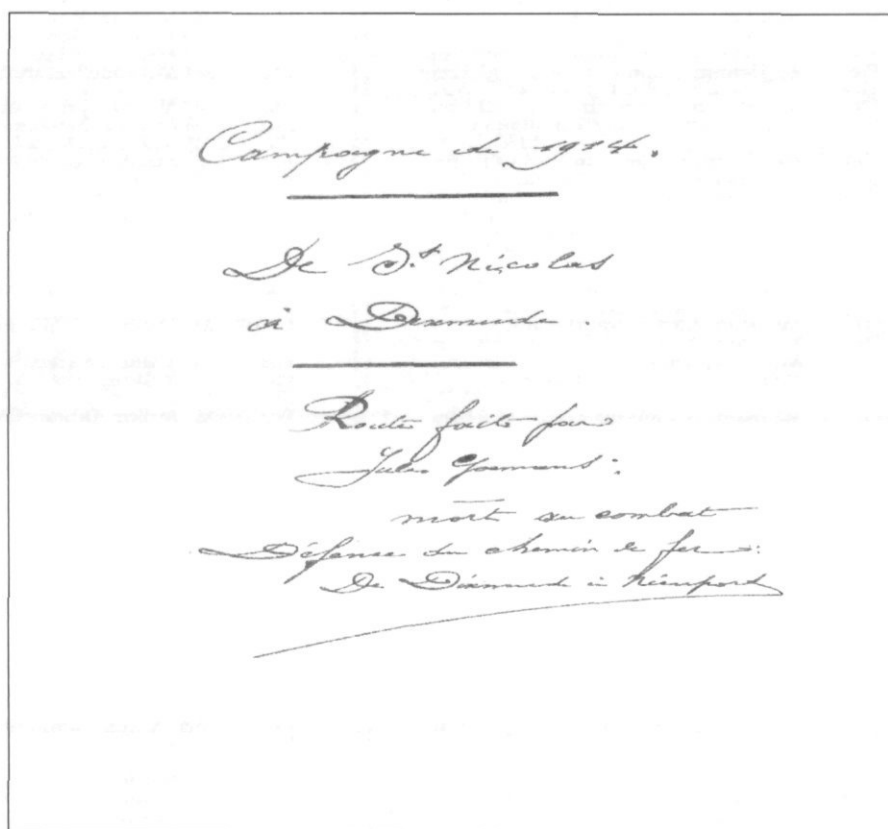 Campagne de 1914.
De St Nicolas
à Dixmude.
Route faite par
Jules :
mort au combat
Défense du chemin de fer :
De Dixmude à Nieuport